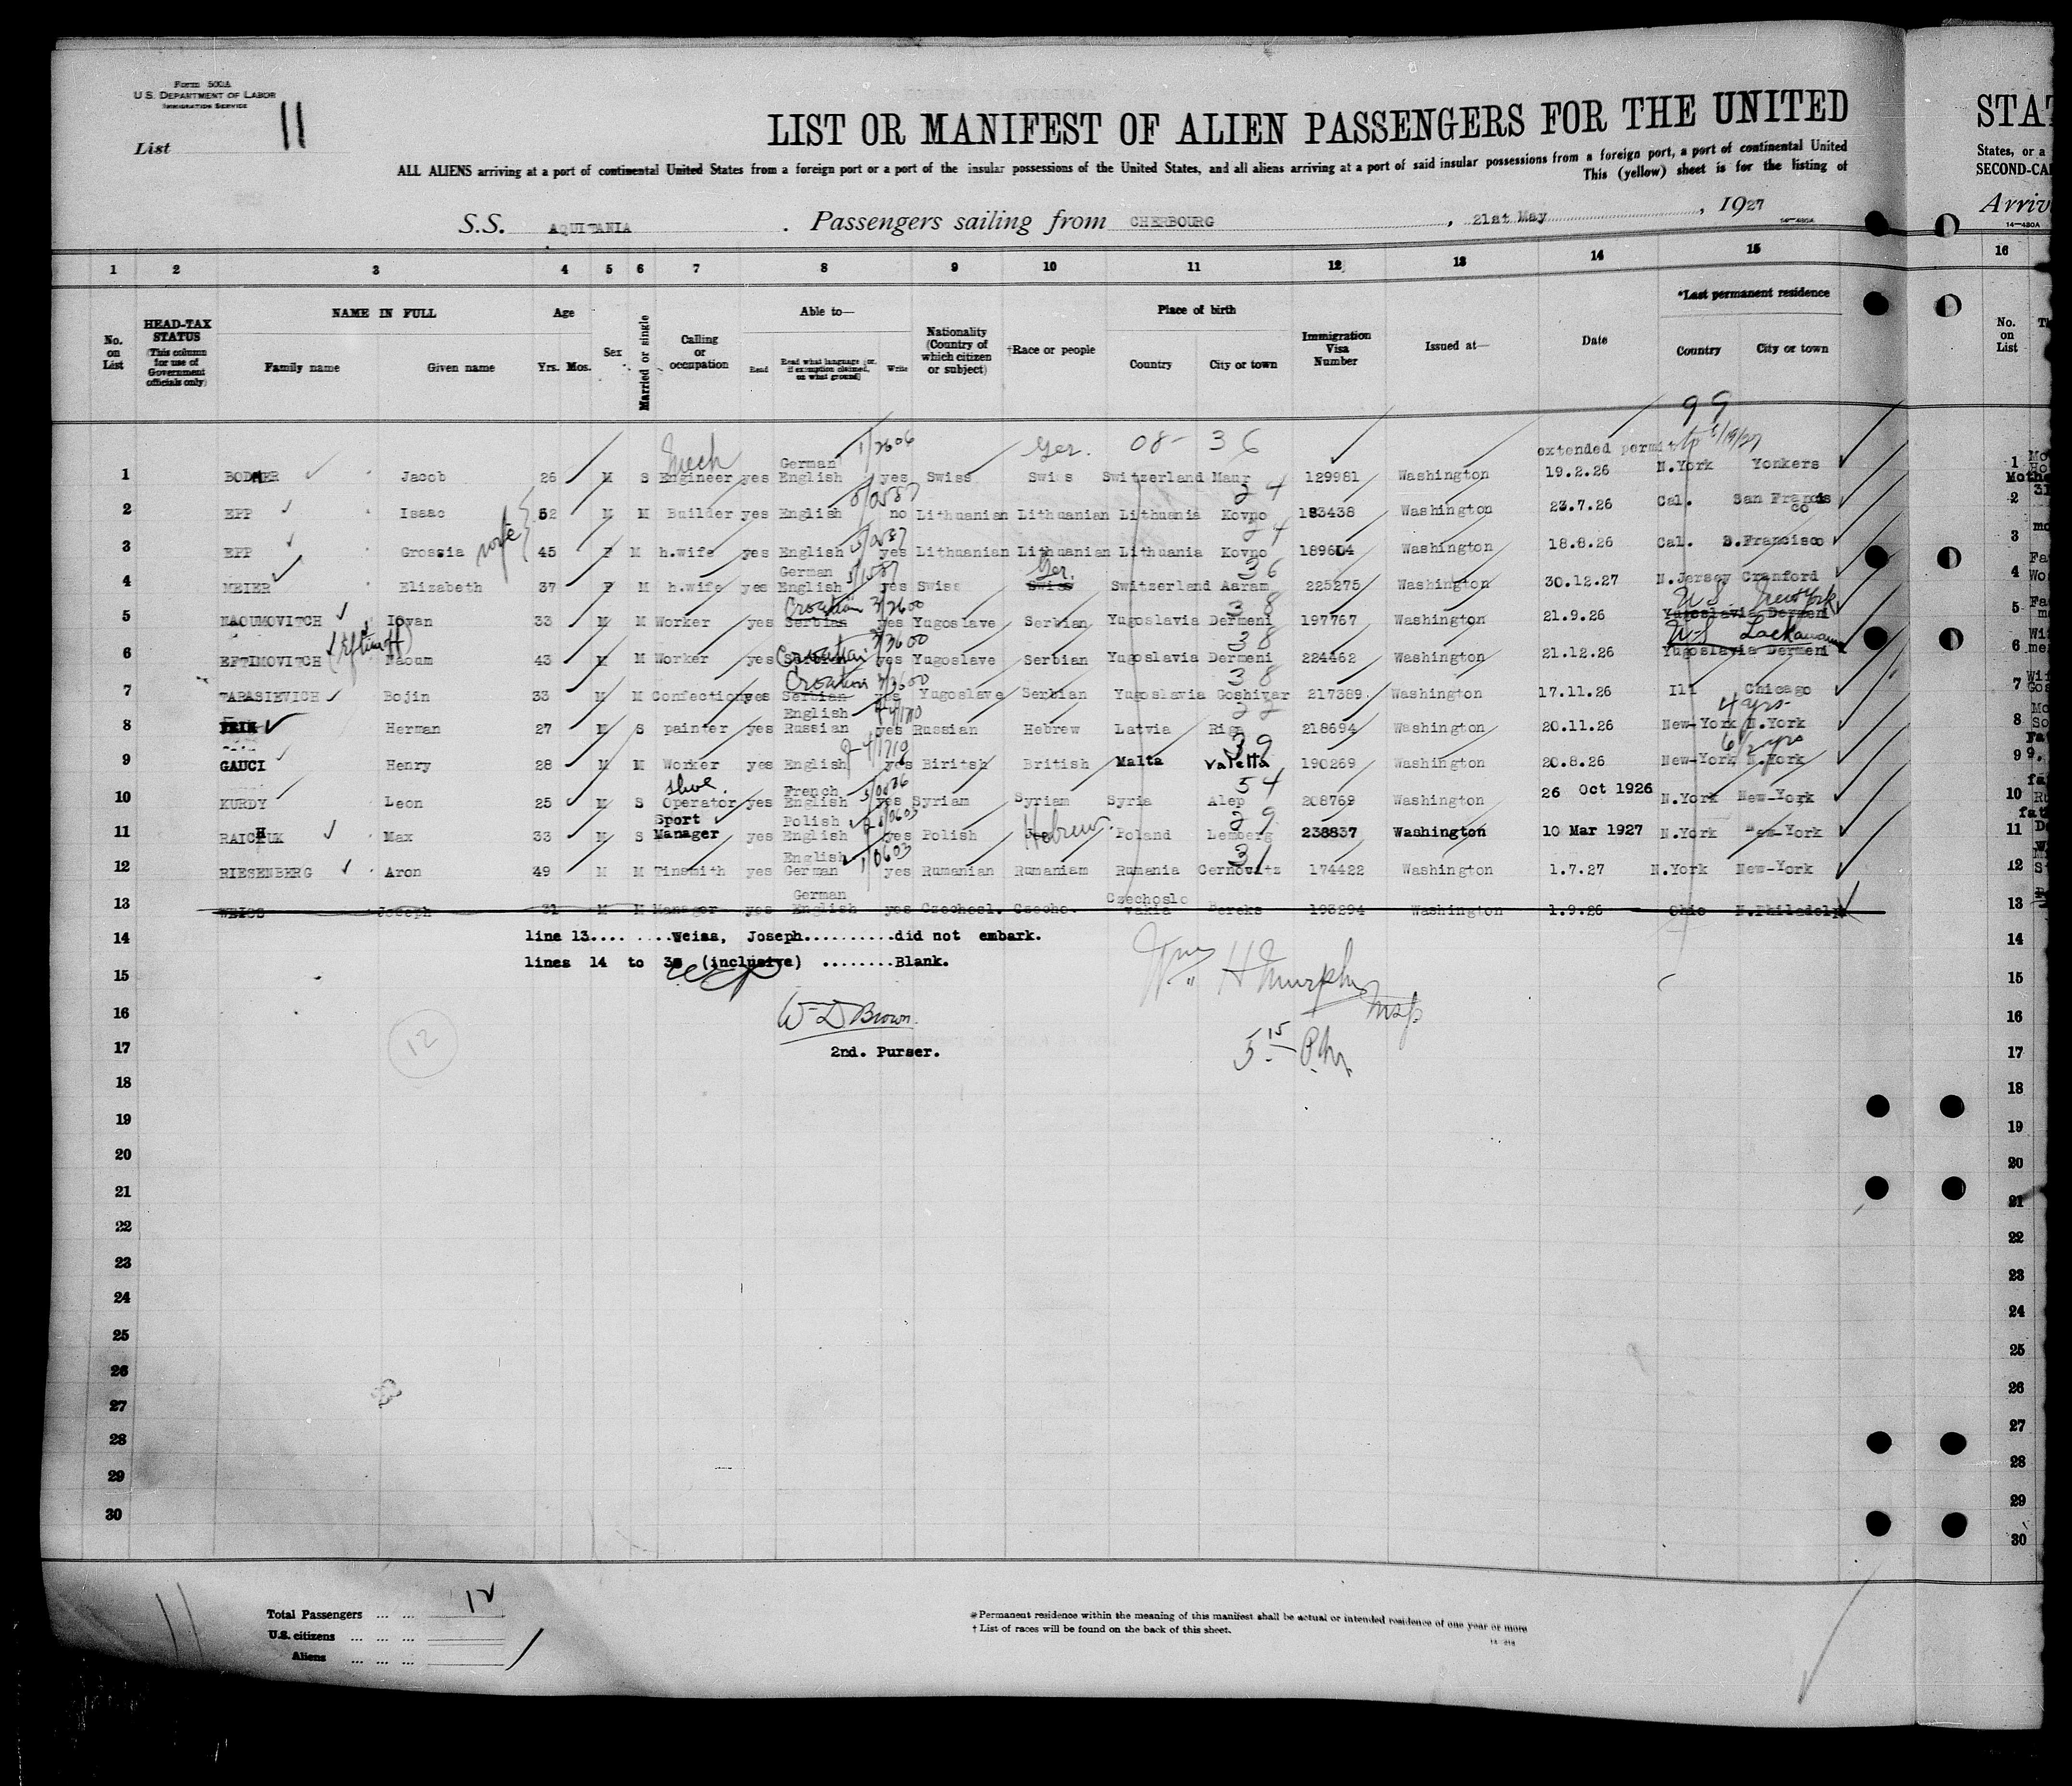 Form 500A
U.S. DEPARTMENT OF LABOR
IMMIGRATION SERVICE
List 11
LIST OR MANIFEST OF ALIEN PASSENGERS FOR THE UNITED
ALL ALIENS arriving at a port of continental United States from a foreign port or a port of the insular possessions of the United States, and all aliens arriving at a port of said insular possessions from a foreign port, a port of continental United
This (yellow) sheet is for the listing of
S.S. AQUITANIA . Passengers sailing from CHERBOURG , 21st May , 1927
14—480A
STAT
States, or a
SECOND-CA
Arriv
14—480A
1 2 3 4 5 6 7 8 9 10 11 12 13 14 15 16
No. on List
HEAD-TAX STATUS (This column for use of Government officials only)
NAME IN FULL
Family name Given name
Age
Yrs. Mos.
Sex
Married or single
Calling or occupation
Able to—
Read Read what language (or, if exemption claimed, on what ground) Write
Nationality (Country of which citizen or subject)
†Race or people
Place of birth
Country City or town
Immigration Visa Number
Issued at—
Date
*Last permanent residence
Country City or town
No. on List
99
Mech German 1/3606 Ger. 08- 36 extended permit 5/19/27
1 BODMER Jacob 26 M S Engineer yes English yes Swiss Swiss Switzerland Maur 129981 Washington 19.2.26 N.York Yonkers 1
24
2 EPP Isaac 52 M M Builder yes English no Lithuanian Lithuanian Lithuania Kovno 183438 Washington 23.7.26 Cal. San Francisco 2
24
3 EPP Grossia 45 F M h.wife yes English yes Lithuanian Lithuanian Lithuania Kovno 189604 Washington 18.8.26 Cal. S.Francisco 3
German Ger. 36
4 MEIER Elizabeth 37 F M h.wife yes English yes Swiss Swiss Switzerland Aaram 225275 Washington 30.12.27 N.Jersey Cranford 4
Croatian 3/3600 38 U S New York
5 NAOUMOVITCH Iovan 33 M M Worker yes Serbian yes Yugoslave Serbian Yugoslavia Dermeni 197767 Washington 21.9.26 Yugoslavia Dermeni 5
(Eftimoff) Croatian 3/3600 38 U-S Lackawanna
6 EFTIMOVITCH Naoum 43 M M Worker yes Serbian yes Yugoslave Serbian Yugoslavia Dermeni 224462 Washington 21.12.26 Yugoslavia Dermeni 6
Croatian 3/3600 38
7 TARASIEVICH Bojin 33 M M Confection yes Serbian yes Yugoslave Serbian Yugoslavia Goshivar 217389 Washington 17.11.26 Ill Chicago 7
English 22 4 yrs
8 Herman 27 M S painter yes Russian yes Russian Hebrew Latvia Riga 218694 Washington 20.11.26 New-York N.York 8
39 6 1/2 yrs
9 GAUCI Henry 28 M M Worker yes English yes Biritsh British Malta Valetta 190269 Washington 20.8.26 New-York N.York 9
Shoe. French 54
10 KURDY Leon 25 M S Operator yes English yes Syriam Syriam Syria Alep 208769 Washington 26 Oct 1926 N.York New-York 10
Sport Polish 29
11 RAICHUK Max 33 M S Manager yes English yes Polish Hebrew Poland Lemberg 238837 Washington 10 Mar 1927 N.York New-York 11
English 31
12 RIESENBERG Aron 49 M M Tinsmith yes German yes Rumanian Rumaniam Rumania Cernovitz 174422 Washington 1.7.27 N.York New-York 12
German Czechoslo
13 WEISS Joseph 31 M M Manager yes English yes Czechosl. Czecho. vakia Bereks 193294 Washington 1.9.26 Ohio N.Philadelp 13
14 line 13.... ....Weiss, Joseph..........did not embark. 14
15 lines 14 to 30 (inclusive) ........Blank. 15
Wm H Murphy
Insp
16 W D Brown. 16
5 15 P.M.
12
17 2nd. Purser. 17
18 18
19 19
20 20
21 21
22 22
23 23
24 24
25 25
26 26
27 27
28 28
29 29
30 30
11
Total Passengers ... ... 12
U.S. citizens ... ... ...
Aliens ... ... ...
*Permanent residence within the meaning of this manifest shall be actual or intended residence of one year or more
† List of races will be found on the back of this sheet.